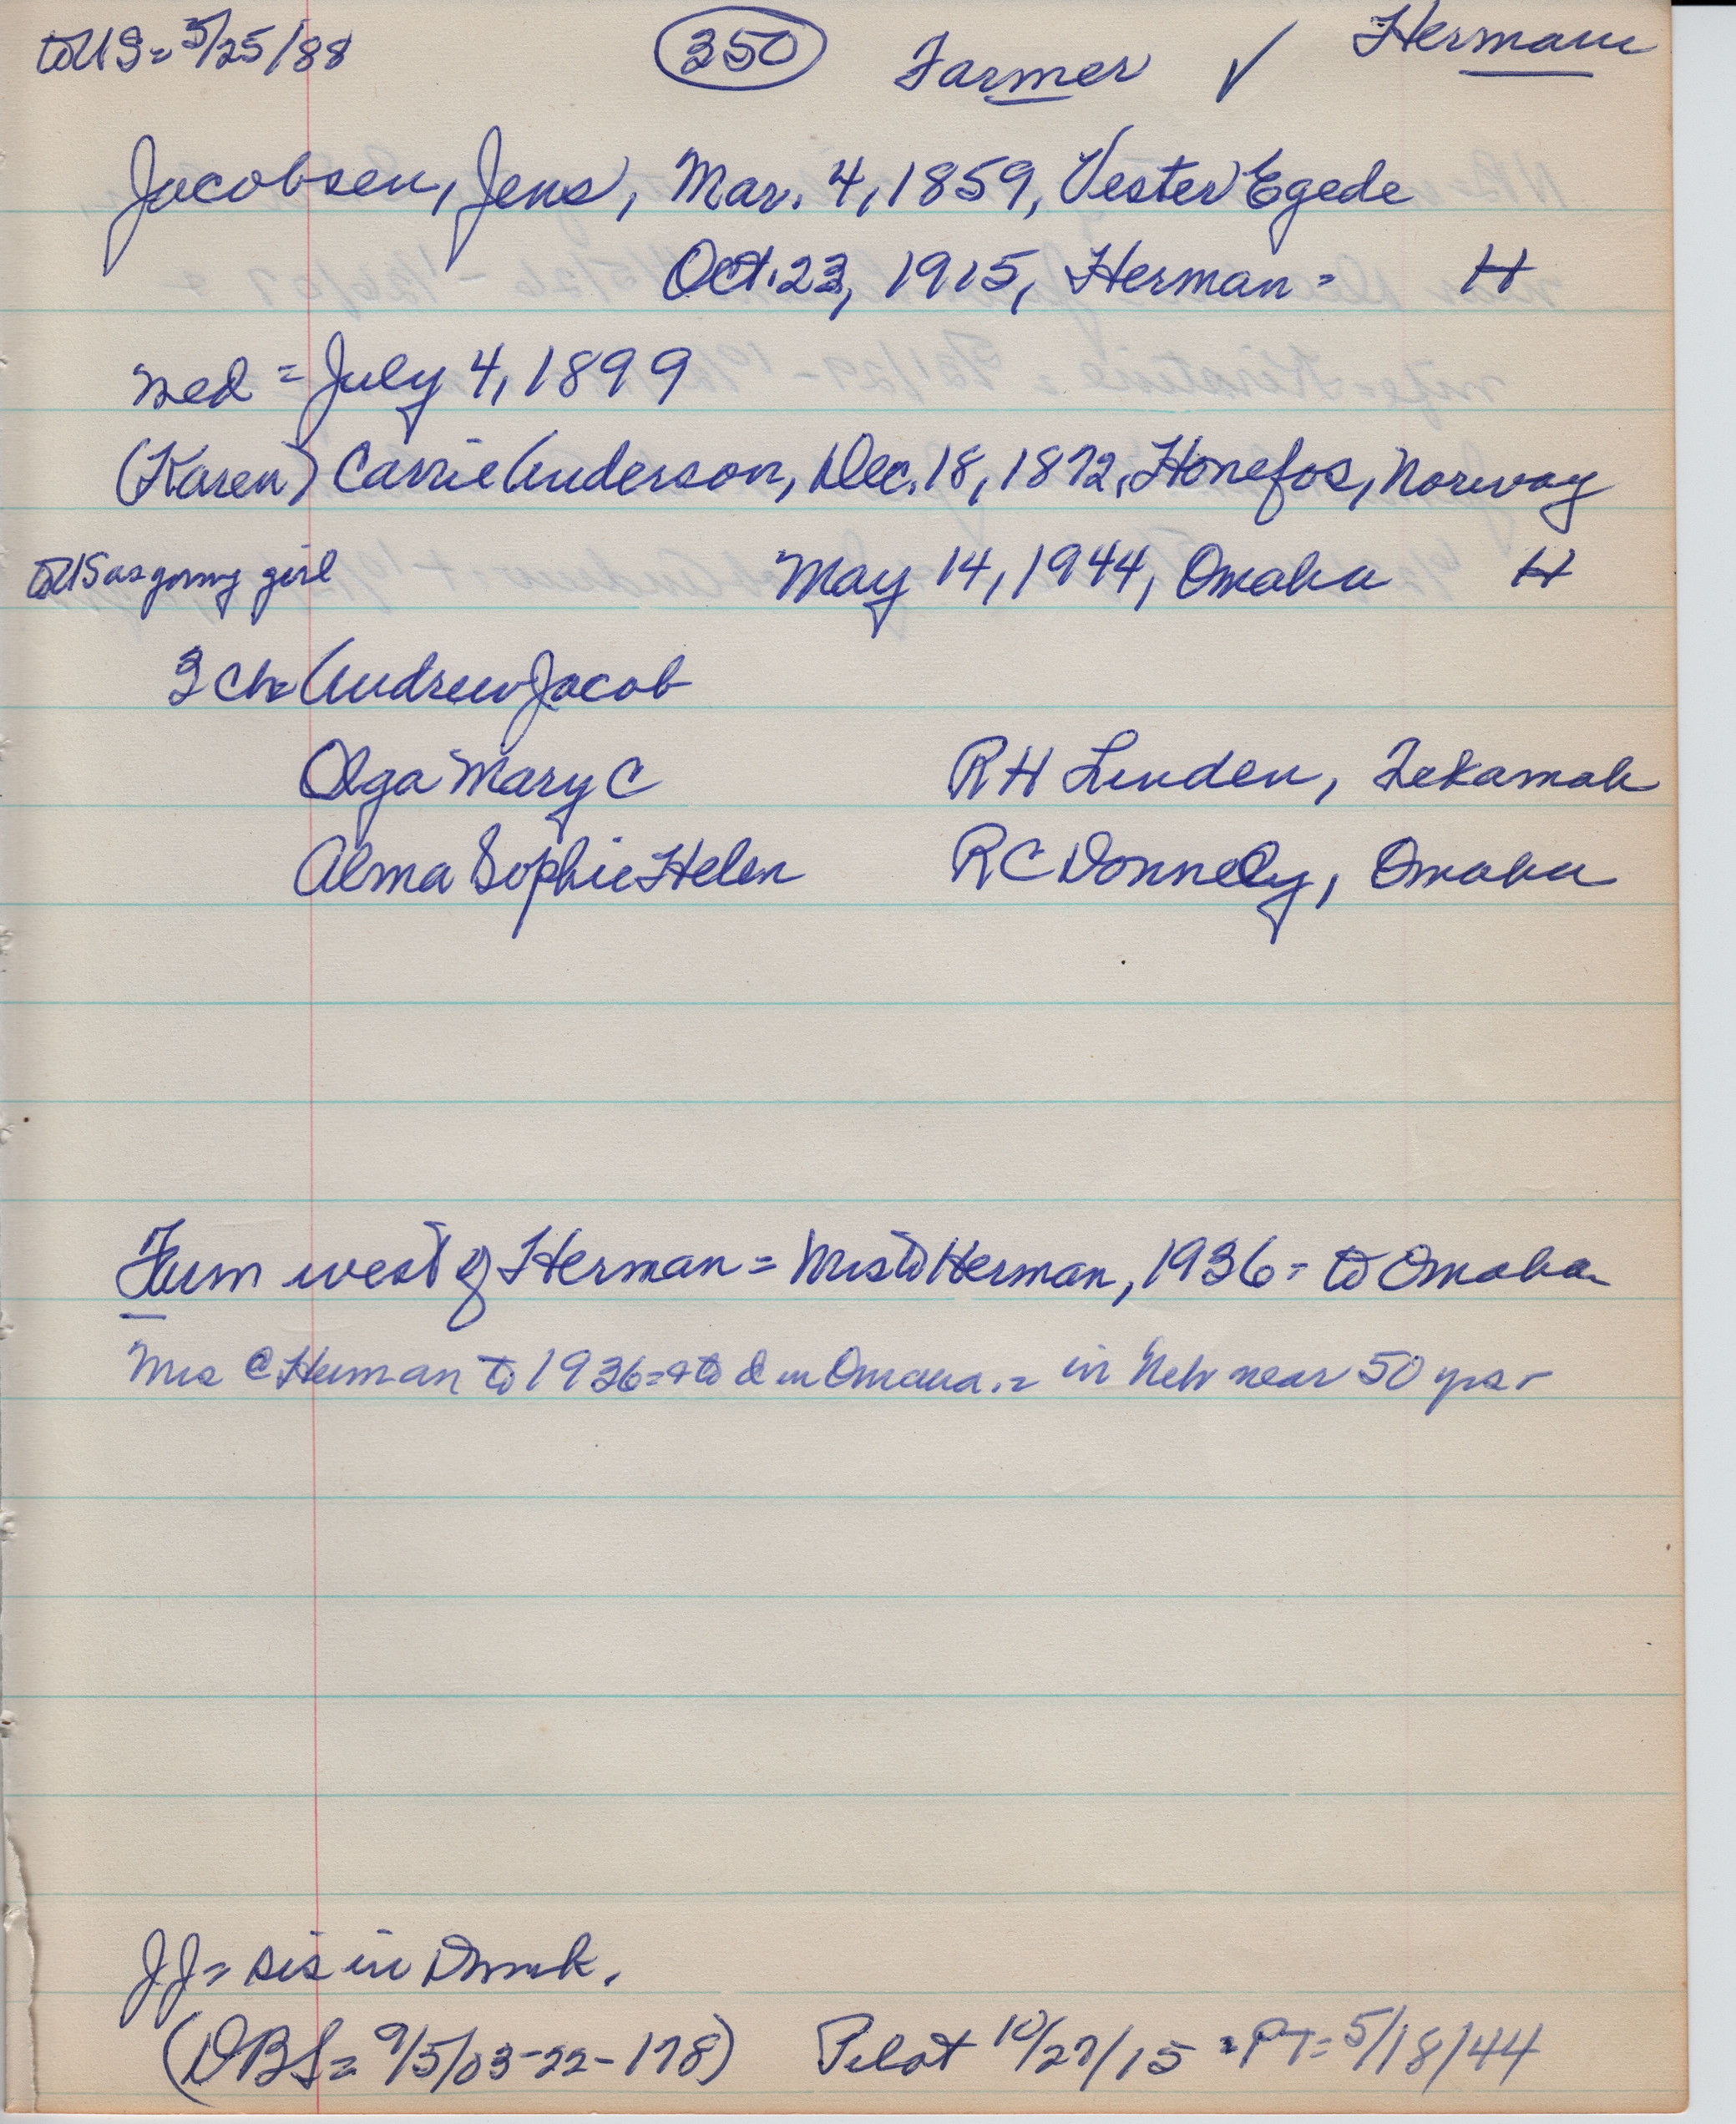 to US = 3/25/88 (350) Farmer ✓ Herman
Jacobsen, Jens, Mar. 4, 1859, Vester Egede
Oct. 23, 1915, Herman = H
med = July 4, 1899
(Karen) Carrie Anderson, Dec. 18, 1872, Honefos, Norway
to US as young girl May 14, 1944, Omaha H
3 ch = Andrew Jacob
Olga Mary C R H Linden, Tekamah
Alma Sophie Helen R C Donnelly, Omaha
Farm west of Herman = Mrs to Herman, 1936 = to Omaha
Mrs @ Herman to 1936 = + to d in Omaha. = in Neb near 50 yrs -
JJ = sis in Dnmk.
(DBS = 9/5/03-22-178) Pilot 10/27/15 = PT = 5/18/44